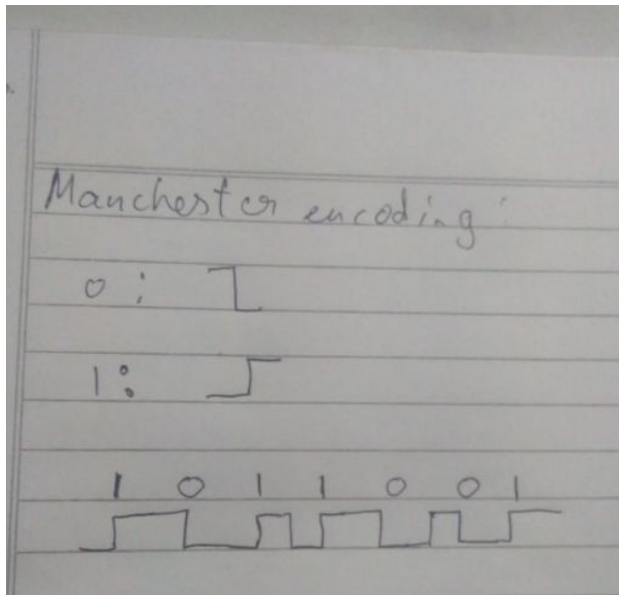 Manchester encoding:
0:
1:
1 0 1 1 0 0 1